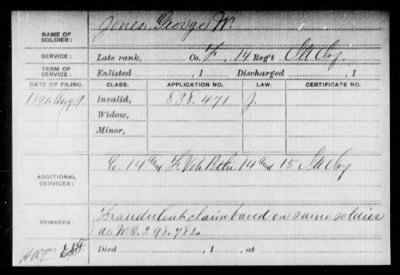 NAME OF SOLDIER: Jones, George W.
SERVICE: Late rank, Co. F, 14 Reg't
TERM OF SERVICE: Enlisted , 1 Discharged , 1
DATE OF FILING. CLASS. APPLICATION NO. LAW. CERTIFICATE NO.
1890 Aug. 9. Invalid, 838.471 J.
Widow,
Minor,
ADDITIONAL SERVICES: C. 14 F. Vet. Batn. 14 and 15
REMARKS: Fraudulent claim based on same soldier
as W.C. 298.782.
Died , 1 , at